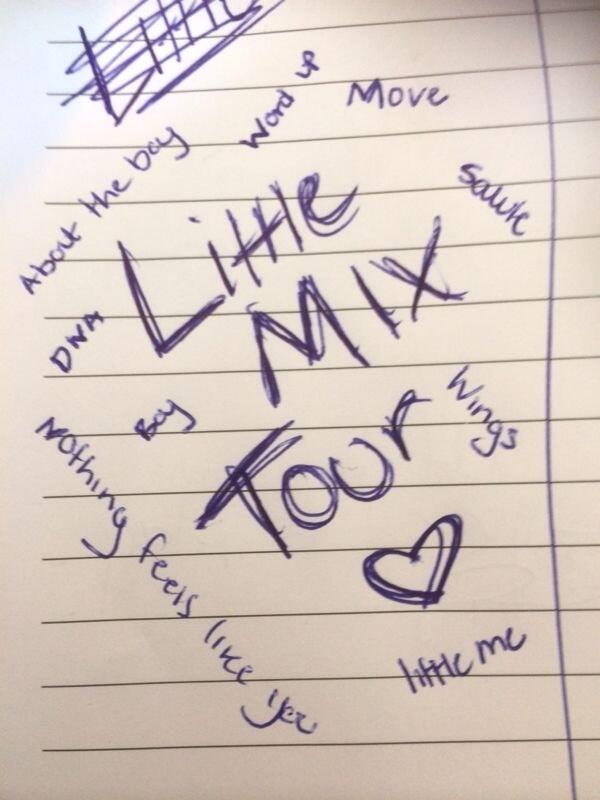 Little
Word up
Move
About the boy
Salute
Little
Mix
DNA
Boy
Wings
Tour
Nothing feels like you
little me